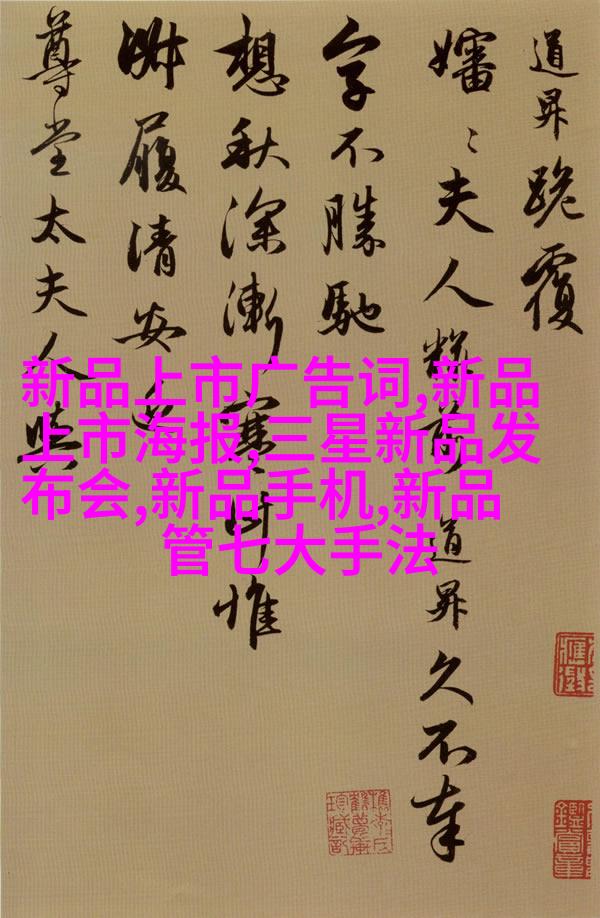 道昇跪覆
嬸〻夫人粧前道昇久不奉
字不勝馳
想秋深漸寒計惟
淑履清安近
尊堂太夫人與
新品上市广告词,新品
上市海报,三星新品发
布会,新品手机,新品
管七大手法